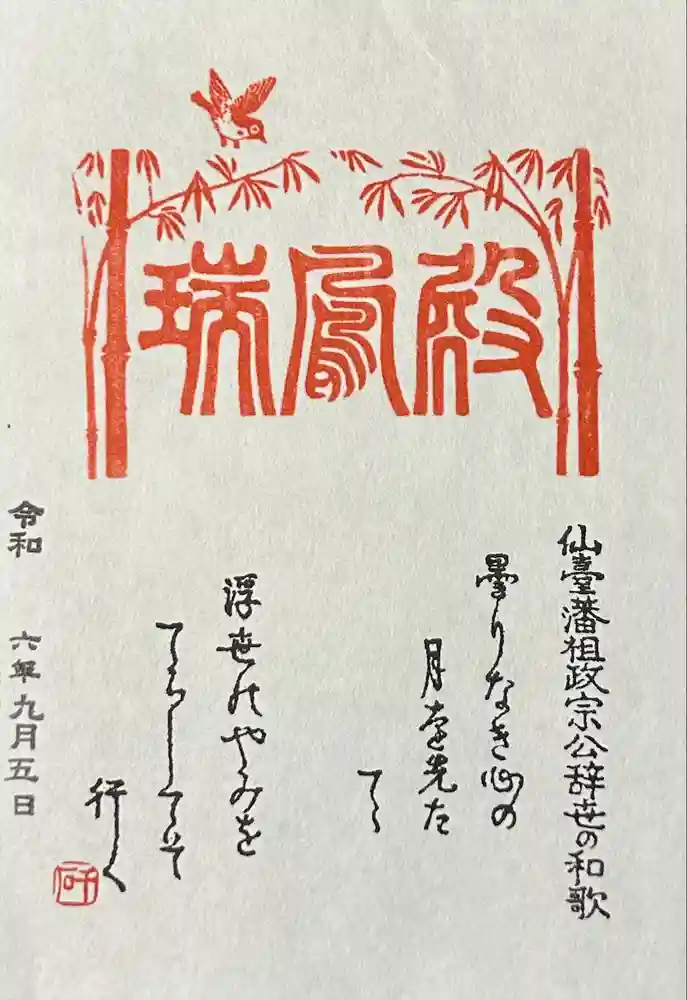 瑞鳳殿
仙臺藩祖政宗公辞世の和歌
曇りなき心の
月を先だ
てゝ
浮世のやみを
てらしてぞ
行く
令和 六年九月五日